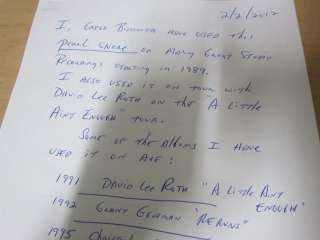 2/2/2012
I, GREGG HAVE USED THIS
PEARL SNARE ON MANY GREAT STUDIO
RECORDINGS STARTING IN 1989.
I ALSO USED IT ON TOUR WITH
DAVID LEE ROTH ON THE "A LITTLE
AINT ENOUGH" TOUR.
SOME OF THE ALBUMS I HAVE
USED IT ON ARE:
1991 DAVID LEE ROTH "A LITTLE AINT
ENOUGH"
1992 GRANT "RERUNS"
1995